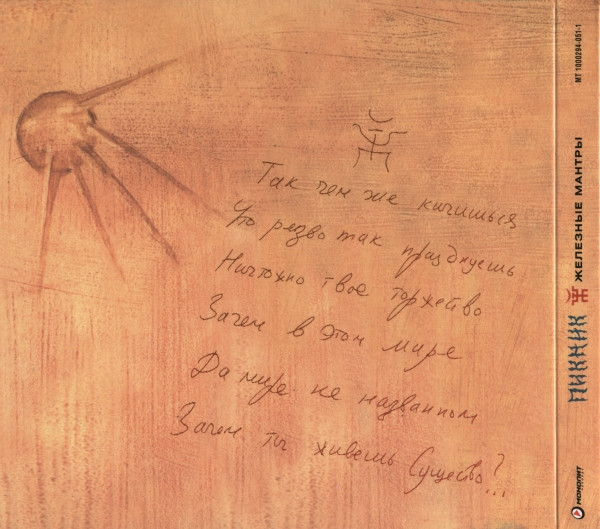 Так чем же кичишься
Что резво так празднуешь
Ничтожно твое торжество
Зачем в этом мире
Да мире не названном
Зачем ты живешь Существо?..
МТ 1000294-051-1
ЖЕЛЕЗНЫЕ МАНТРЫ
ПИКНИК
МОНОЛИТ